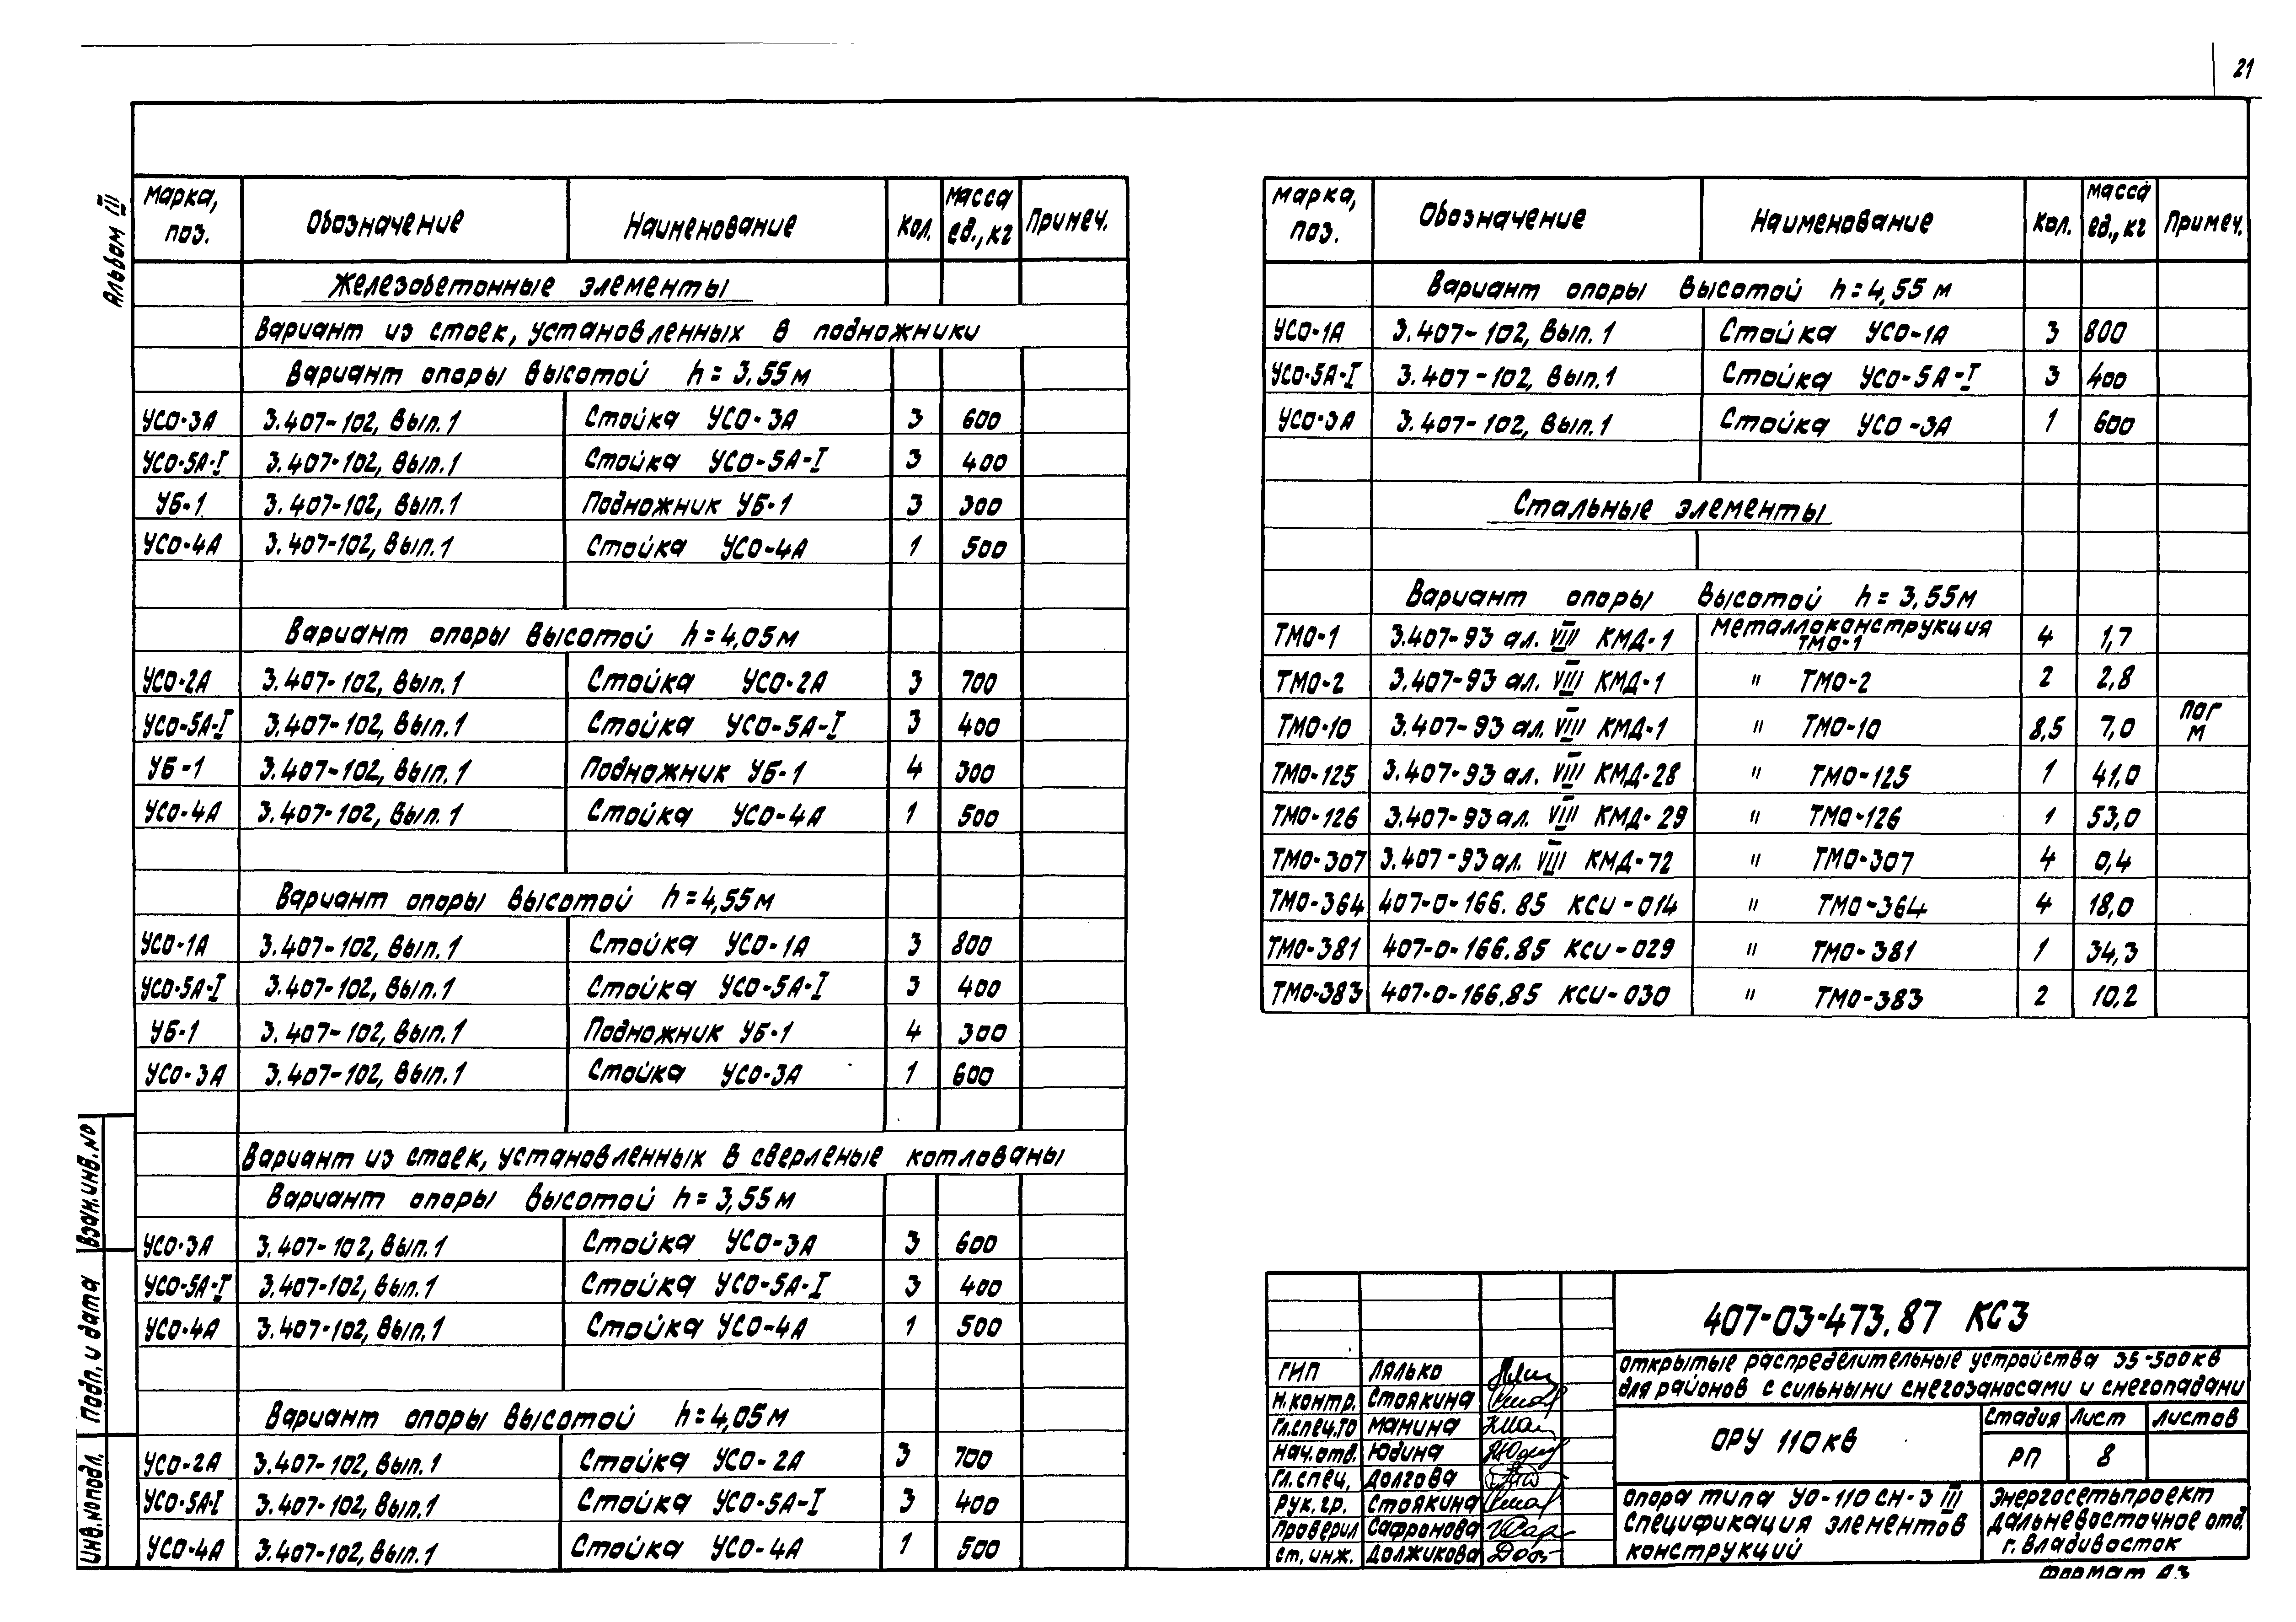 21
Альбом III
Марка, поз. Обозначение Наименование Кол. Масса ед., кг Примеч.
Железобетонные элементы
Вариант из стоек, установленных в подножники
Вариант опоры высотой h = 3,55 м
УСО-3А 3.407-102, Вып. 1 Стойка УСО-3А 3 600
УСО-5А-I 3.407-102, Вып. 1 Стойка УСО-5А-I 3 400
УБ-1 3.407-102, Вып. 1 Подножник УБ-1 3 300
УСО-4А 3.407-102, Вып. 1 Стойка УСО-4А 1 500
Вариант опоры высотой h = 4,05 м
УСО-2А 3.407-102, Вып. 1 Стойка УСО-2А 3 700
УСО-5А-I 3.407-102, Вып. 1 Стойка УСО-5А-I 3 400
УБ-1 3.407-102, Вып. 1 Подножник УБ-1 4 300
УСО-4А 3.407-102, Вып. 1 Стойка УСО-4А 1 500
Вариант опоры высотой h = 4,55 м
УСО-1А 3.407-102, Вып. 1 Стойка УСО-1А 3 800
УСО-5А-I 3.407-102, Вып. 1 Стойка УСО-5А-I 3 400
УБ-1 3.407-102, Вып. 1 Подножник УБ-1 4 300
УСО-3А 3.407-102, Вып. 1 Стойка УСО-3А 1 600
Вариант из стоек, установленных в сверленые котлованы
Вариант опоры высотой h = 3,55 м
УСО-3А 3.407-102, Вып. 1 Стойка УСО-3А 3 600
УСО-5А-I 3.407-102, Вып. 1 Стойка УСО-5А-I 3 400
УСО-4А 3.407-102, Вып. 1 Стойка УСО-4А 1 500
Вариант опоры высотой h = 4,05 м
УСО-2А 3.407-102, Вып. 1 Стойка УСО-2А 3 700
УСО-5А-I 3.407-102, Вып. 1 Стойка УСО-5А-I 3 400
УСО-4А 3.407-102, Вып. 1 Стойка УСО-4А 1 500
Взам.инв.№
Подп. и дата
Инв.№подл.
Марка, поз. Обозначение Наименование Кол. Масса ед., кг Примеч.
Вариант опоры высотой h = 4,55 м
УСО-1А 3.407-102, Вып. 1 Стойка УСО-1А 3 800
УСО-5А-I 3.407-102, Вып. 1 Стойка УСО-5А-I 3 400
УСО-3А 3.407-102, Вып. 1 Стойка УСО-3А 1 600
Стальные элементы
Вариант опоры высотой h = 3,55 м
ТМО-1 3.407-93 ал. VIII КМД-1 Металлоконструкция ТМО-1 4 1,7
ТМО-2 3.407-93 ал. VIII КМД-1 " ТМО-2 2 2,8
ТМО-10 3.407-93 ал. VIII КМД-1 " ТМО-10 8,5 7,0 пог м
ТМО-125 3.407-93 ал. VIII КМД-28 " ТМО-125 1 41,0
ТМО-126 3.407-93 ал. VIII КМД-29 " ТМО-126 1 53,0
ТМО-307 3.407-93 ал. VIII КМД-72 " ТМО-307 4 0,4
ТМО-364 407-0-166.85 КСИ-014 " ТМО-364 4 18,0
ТМО-381 407-0-166.85 КСИ-029 " ТМО-381 1 34,3
ТМО-383 407-0-166.85 КСИ-030 " ТМО-383 2 10,2
407-03-473.87 КС3
Открытые распределительные устройства 35-500кв
для районов с сильными снегозаносами и снегопадами
ГИП Лялько
Н.контр. Стоякина
Гл.спец.ТО Манина
Нач.отд. Юдина
Гл.спец. Долгова
Рук.гр. Стоякина
Проверил Сафронова
Ст.инж. Должикова
ОРУ 110кв
Стадия Лист Листов
РП 8
Опора типа УО-110 СН-3 III
Спецификация элементов
конструкций
Энергосетьпроект
Дальневосточное отд.
г. Владивосток
Формат А3